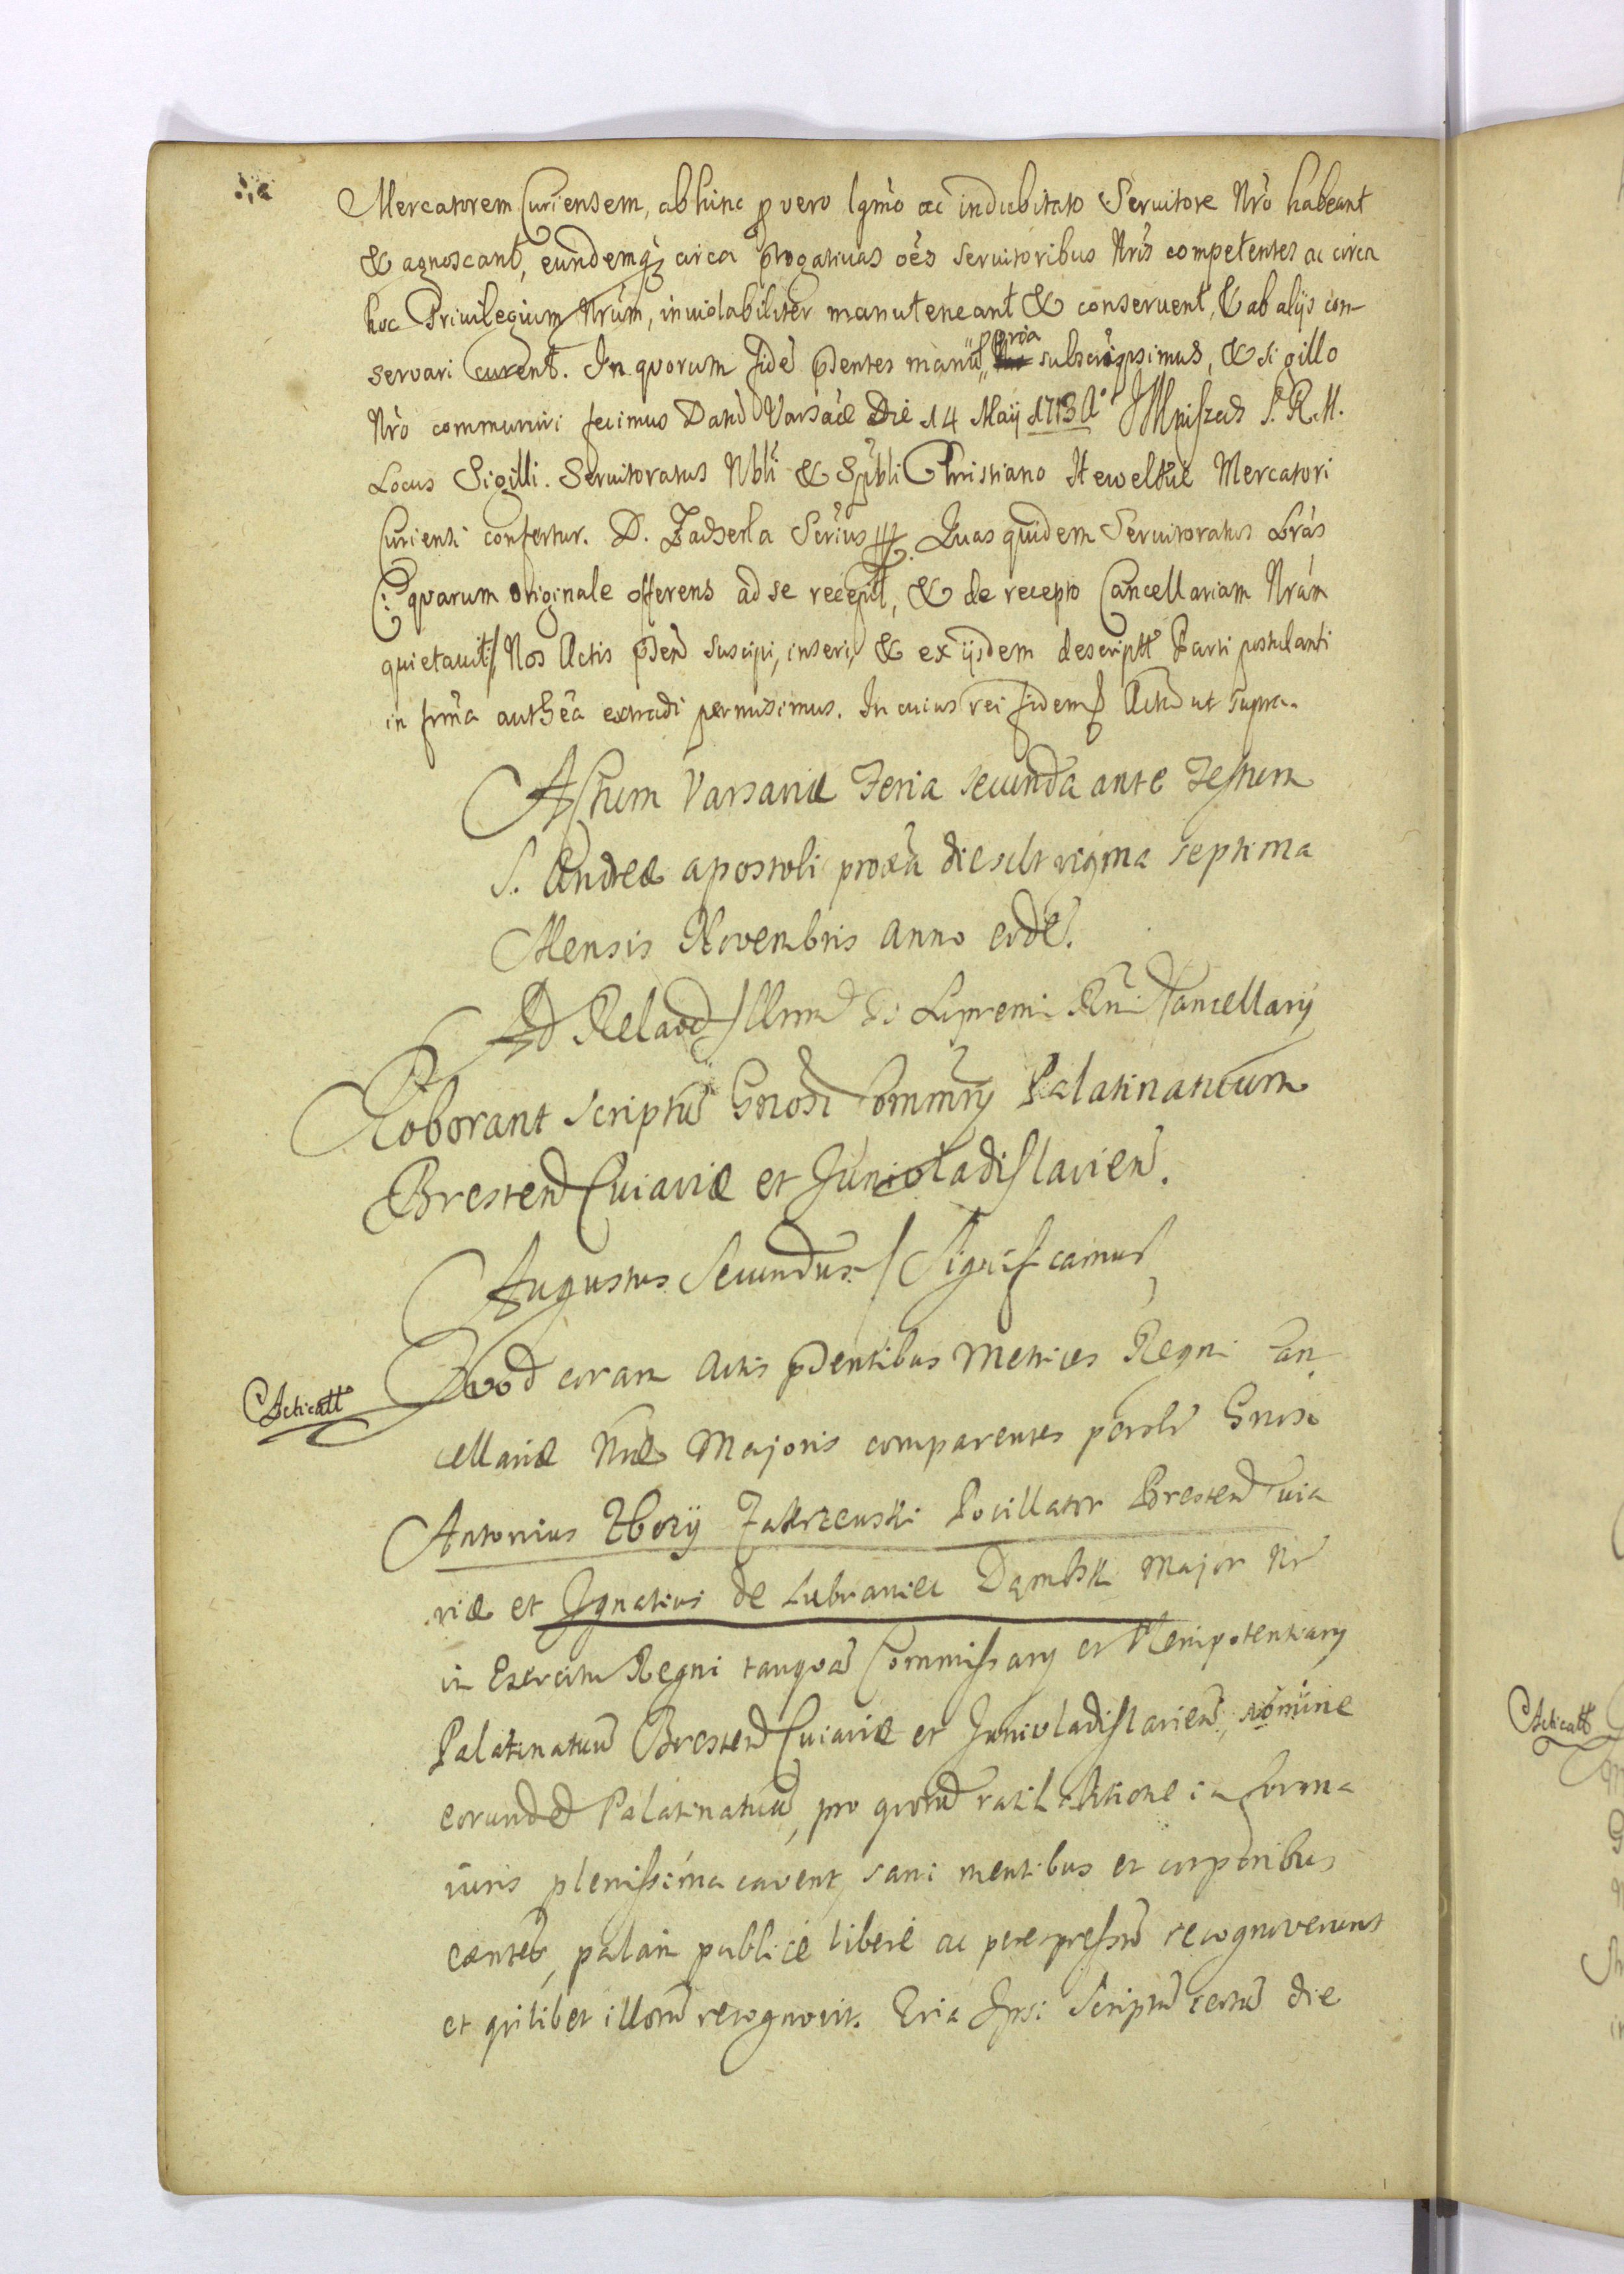 Mercatorem Curiensem, abhinc p vero lgm̃o ac indubitato Servitore Nr̃o habeant
& agnoscant, eundemq; circa progativas oẽs servitoribus Nrĩs competentes ac circa
hoc Privilegium Nrũm, inviolabiliter manuteneant & conservent, & ab alijs con-
servari curent. In quorum fidẽ pdentes manũ ppria subscripsimus, & sigillo
Nrõ communiri fecimus Datũ Varsãæ Die 14 Maij 1713 Aº JMniszech S. R. M.
Locus Sigilli. Servitoratus Nbli & Spbli Christiano Heweltke Mercatori
Curiensi confertur. D. Zadserla Scrius. Quas quidem Servitoratus Lrãs
(: quarum originale offerens ad se recepit, & de recepto Cancellariam Nrãm
quietavit :) Nos Actis pdend suscipi, inseri, & ex ijsdem descriptt Parti postulanti
in frmã authẽa extradi permisimus. In cuius rei fidem Actũ ut supra.
Actum Varsaviæ Feria secunda ante Festum
S. Andreæ apostoli proxã die scilt vigma septima
Mensis Novembris Anno eodẽ.
Ad Relaõd Illrm D. Supremi Rni Cancellarij
Roborant scriptũ Gñosi Commrij Palatinatuum
Brestend Cuiaviæ et Junivladislavien.
Augustus Secundus / Significamus
Acticatt
Quod coram Actis pdentibus Metrices Regni Can
cellariæ Nræ Majoris comparentes persltr Gnosi
Antonius Zbozy Zakrzewski Pocillator Brestend Cuia
viæ et Ignatius de Lubraniec Dąmbski Major Nr
in Exercitu Regni tanquã Commissarij et Plenipotentiarij
Palatinatuũ Brestend Cuiaviæ et Junivladislavien, nomine
eorundẽ Palatinatuũ, pro quorũ ratihabitione in forma
iuris plenissima cavent, sani mentibus et corporibus
exntes, palam publice libere ac perexpressũ recognoverunt
et quilibet illorũ recognovit. Quia Ipsi Scriptũ certũ die
Acticatt